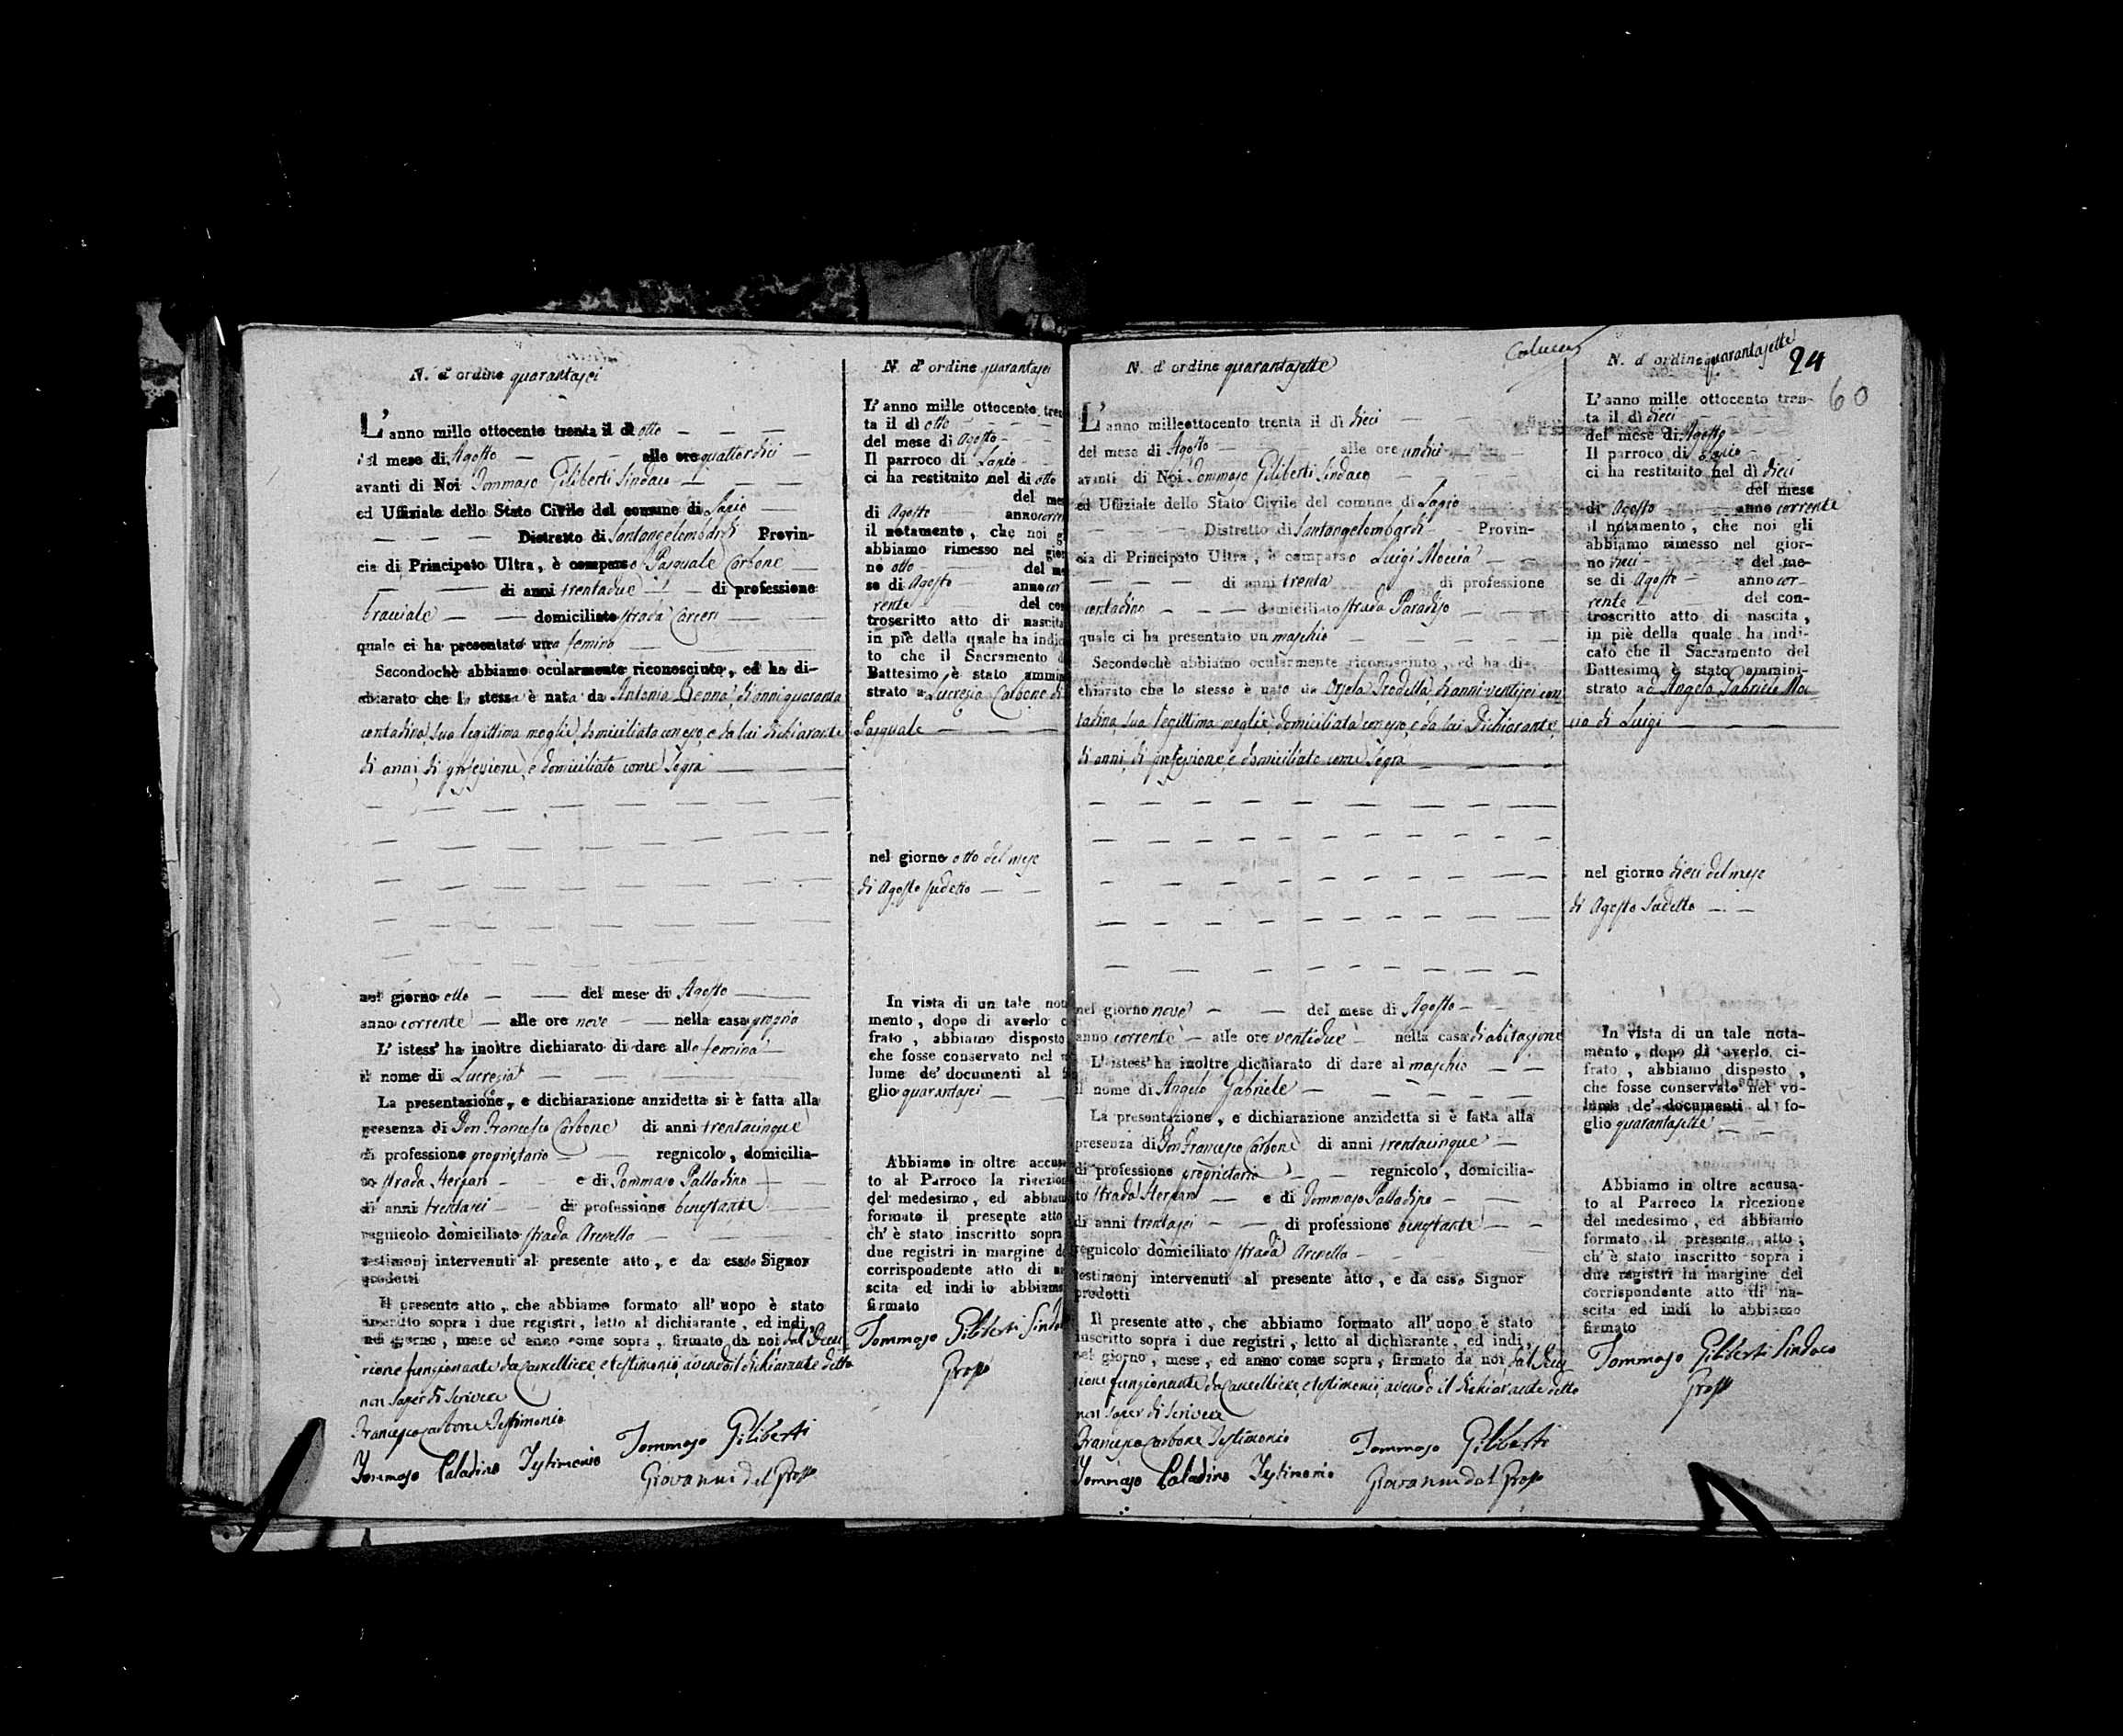 N. d'ordine quarantasei
L'anno mille ottocento trenta il dì otto
del mese di Agosto alle ore quattordici
avanti di Noi Tommaso Giliberti Sindaco
ed Uffiziale dello Stato Civile del comune di Lapio
Distretto di Santangelombardi Provin-
cia di Principato Ultra, è comparso Pasquale Carbone
di anni trentadue di professione
bracciale domiciliato strada Carceri
quale ci ha presentato una femina
Secondochè abbiamo ocularmente riconosciuto, ed ha di-
chiarato che la stessa è nata da Antonia Penna, di anni quaranta
contadina, sua legittima moglie, domiciliata con esso, e da lui dichiarante
di anni, di professione, e domiciliato come sopra
nel giorno otto del mese di Agosto
anno corrente alle ore nove nella casa propria
L'istess' ha inoltre dichiarato di dare alla femina
il nome di Lucrezia
La presentazione, e dichiarazione anzidetta si è fatta alla
presenza di Don Francesco Carbone di anni trentacinque
di professione proprietario regnicolo, domicilia-
to strada Sterparo e di Tommaso Palladino
di anni trentasei di professione benestante
regnicolo domiciliato strada Arenella
testimonj intervenuti al presente atto, e da esso Signor
prodotti
Il presente atto, che abbiamo formato all'uopo è stato
inscritto sopra i due registri, letto al dichiarante, ed indi,
nel giorno, mese ed anno come sopra, firmato da noi dal Decu
rione funzionante da Cancelliere, e testimonii, avendo il dichiarante detto
non saper di scrivere
Francesco Carbone Testimonio
Tommaso Giliberti
Tommaso Paladino Testimonio
Giovanni del Grosso
N. d'ordine quarantasei
L'anno mille ottocento tren
ta il dì otto
del mese di Agosto
Il parroco di Lapio
ci ha restituito nel dì otto
del mes
di Agosto anno corren
il notamento, che noi g
abbiamo rimesso nel gior
no otto del me
se di Agosto anno cor
rente del con
troscritto atto di nascita
in piè della quale ha indic
to che il Sacramento d
Battesimo è stato ammin
strato a Lucrezia Carbone di
Pasquale
nel giorno otto del mese
di Agosto sudetto
In vista di un tale not
mento, dopo di averlo c
frato, abbiamo disposto
che fosse conservato nel v
lume de' documenti al f
glio quarantasei
Abbiamo in oltre accus
to al Parroco la ricezion
del medesimo, ed abbiam
formato il presente atto
ch'è stato inscritto sopra
due registri in margine d
corrispondente atto di n
scita ed indi lo abbiamo
firmato
Tommaso Giliberti Sindaco
Grosso
N. d'ordine quarantasette
L'anno milleottocento trenta il dì dieci
del mese di Agosto alle ore undici
avanti di Noi Tommaso Giliberti Sindaco
ed Uffiziale dello Stato Civile del comune di Lapio
Distretto di Santangelombardi Provin-
cia di Principato Ultra, è comparso Luigi Moccia
di anni trenta di professione
contadino domiciliato strada Paradiso
quale ci ha presentato un maschio
Secondochè abbiamo ocularmente riconosciuto, ed ha di-
chiarato che lo stesso è nato da Orsola Trodella, di anni ventisei con
tadina, sua legittima moglie, domiciliata con esso, e da lui Dichiarante,
di anni, di professione, e domiciliato come sopra
nel giorno nove del mese di Agosto
anno corrente alle ore ventidue nella casa di abitazione
L'istess' ha inoltre dichiarato di dare al maschio
il nome di Angelo Gabriele
La presentazione, e dichiarazione anzidetta si è fatta alla
presenza di Don Francesco Carbone di anni trentacinque
di professione proprietario regnicolo, domicilia-
to strada Sterparo e di Tommaso Palladino
di anni trentasei di professione benestante
regnicolo domiciliato strada Arenella
testimonj intervenuti al presente atto, e da esso Signor
prodotti
Il presente atto, che abbiamo formato all'uopo è stato
inscritto sopra i due registri, letto al dichiarante, ed indi,
nel giorno, mese, ed anno come sopra, firmato da noi, dal Decu
rione funzionante da Cancelliere, e testimonii, avendo il dichiarante detto
non saper di scrivere
Francesco Carbone Testimonio
Tommaso Giliberti
Tommaso Paladino Testimonio
Giovanni del Grosso
N. d'ordine quarantasette
24
60
L'anno mille ottocento tren-
ta il dì dieci
del mese di Agosto
Il parroco di Lapio
ci ha restituito nel dì dieci
del mese
di Agosto anno corrente
il notamento, che noi gli
abbiamo rimesso nel gior-
no dieci del me-
se di Agosto anno cor-
rente del con-
troscritto atto di nascita,
in piè della quale ha indi-
cato che il Sacramento del
Battesimo è stato ammini-
strato ad Angelo Gabriele Moc
cia di Luigi
nel giorno dieci del mese
di Agosto sudetto
In vista di un tale nota-
mento, dopo di averlo ci-
frato, abbiamo disposto,
che fosse conservato nel vo-
lume de' documenti al fo-
glio quarantasette
Abbiamo in oltre accusa-
to al Parroco la ricezione
del medesimo, ed abbiamo
formato il presente atto,
ch'è stato inscritto sopra i
due registri in margine del
corrispondente atto di na-
scita ed indi lo abbiamo
firmato
Tommaso Giliberti Sindaco
Grosso